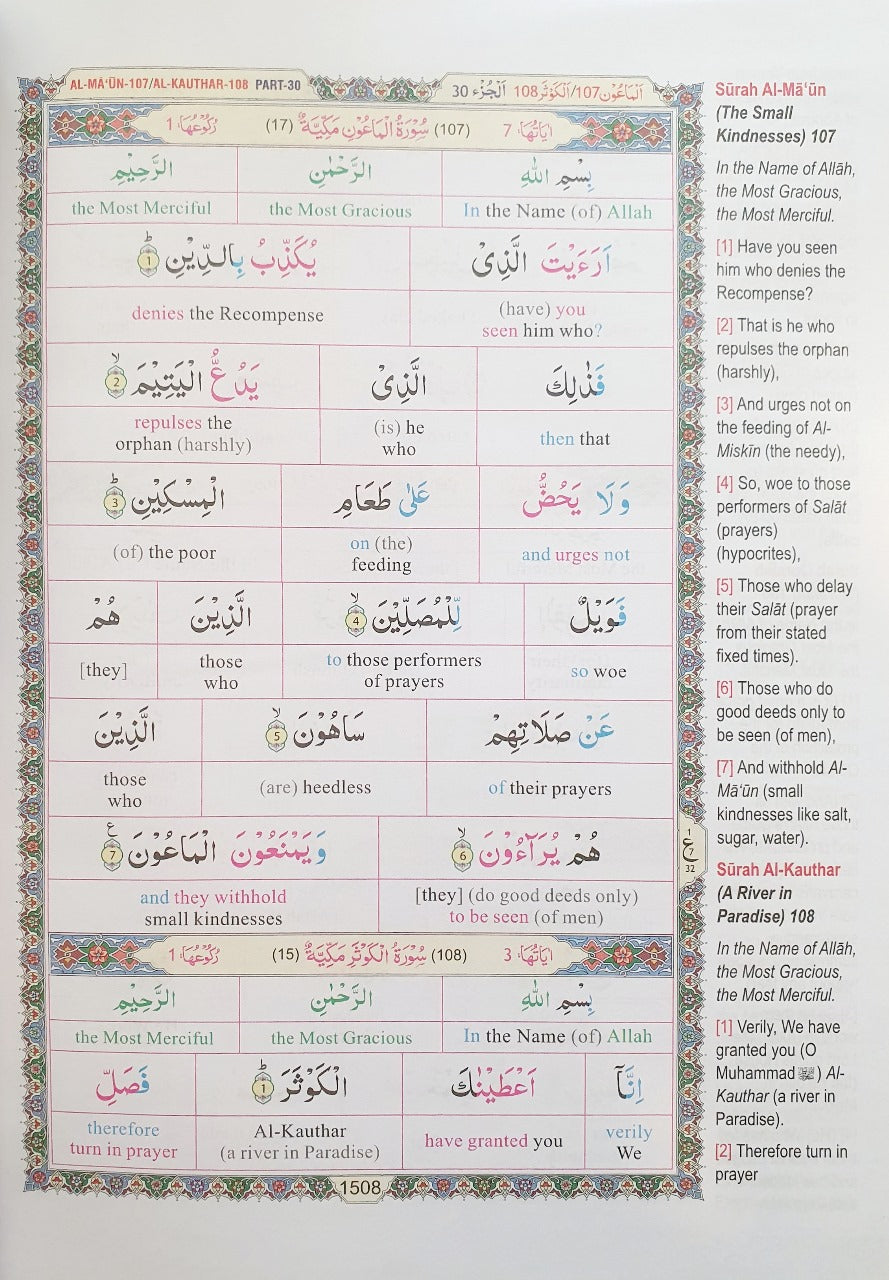 AL-MĀ‘ŪN-107/AL-KAUTHAR-108 PART-30
الْمَاعُوْن107/الْكَوْثَر108 اَلْجُزْء 30
اٰيَاتُهَا: 7 (107) سُوْرَةُ الْمَاعُوْنِ مَكِّيَّةٌ (17) رُكُوْعُهَا: 1
بِسْمِ اللّٰهِ الرَّحْمٰنِ الرَّحِيْمِ
In the Name (of) Allah the Most Gracious the Most Merciful
اَرَءَيْتَ الَّذِىْ يُكَذِّبُ بِالدِّيْنِ ؕ 1
(have) you seen him who? denies the Recompense
فَذٰلِكَ الَّذِىْ يَدُعُّ الْيَتِيْمَ ۙ 2
then that (is) he who repulses the orphan (harshly)
وَلَا يَحُضُّ عَلٰى طَعَامِ الْمِسْكِيْنِ ؕ 3
and urges not on (the) feeding (of) the poor
فَوَيْلٌ لِّلْمُصَلِّيْنَ ۙ 4 الَّذِيْنَ هُمْ
so woe to those performers of prayers those who [they]
عَنْ صَلَاتِهِمْ سَاهُوْنَ ۙ 5 الَّذِيْنَ
of their prayers (are) heedless those who
هُمْ يُرَآءُوْنَ ۙ 6 وَيَمْنَعُوْنَ الْمَاعُوْنَ ع 7
[they] (do good deeds only) to be seen (of men) and they withhold small kindnesses
1
ع
7
32
اٰيَاتُهَا: 3 (108) سُوْرَةُ الْكَوْثَرِ مَكِّيَّةٌ (15) رُكُوْعُهَا: 1
بِسْمِ اللّٰهِ الرَّحْمٰنِ الرَّحِيْمِ
In the Name (of) Allah the Most Gracious the Most Merciful
اِنَّاۤ اَعْطَيْنٰكَ الْكَوْثَرَ ؕ 1 فَصَلِّ
verily We have granted you Al-Kauthar (a river in Paradise) therefore turn in prayer
1508
Sūrah Al-Mā‘ūn
(The Small
Kindnesses) 107
In the Name of Allāh,
the Most Gracious,
the Most Merciful.
[1] Have you seen
him who denies the
Recompense?
[2] That is he who
repulses the orphan
(harshly),
[3] And urges not on
the feeding of Al-
Miskīn (the needy),
[4] So, woe to those
performers of Salāt
(prayers)
(hypocrites),
[5] Those who delay
their Salāt (prayer
from their stated
fixed times).
[6] Those who do
good deeds only to
be seen (of men),
[7] And withhold Al-
Mā‘ūn (small
kindnesses like salt,
sugar, water).
Sūrah Al-Kauthar
(A River in
Paradise) 108
In the Name of Allāh,
the Most Gracious,
the Most Merciful.
[1] Verily, We have
granted you (O
Muhammad ﷺ) Al-
Kauthar (a river in
Paradise).
[2] Therefore turn in
prayer